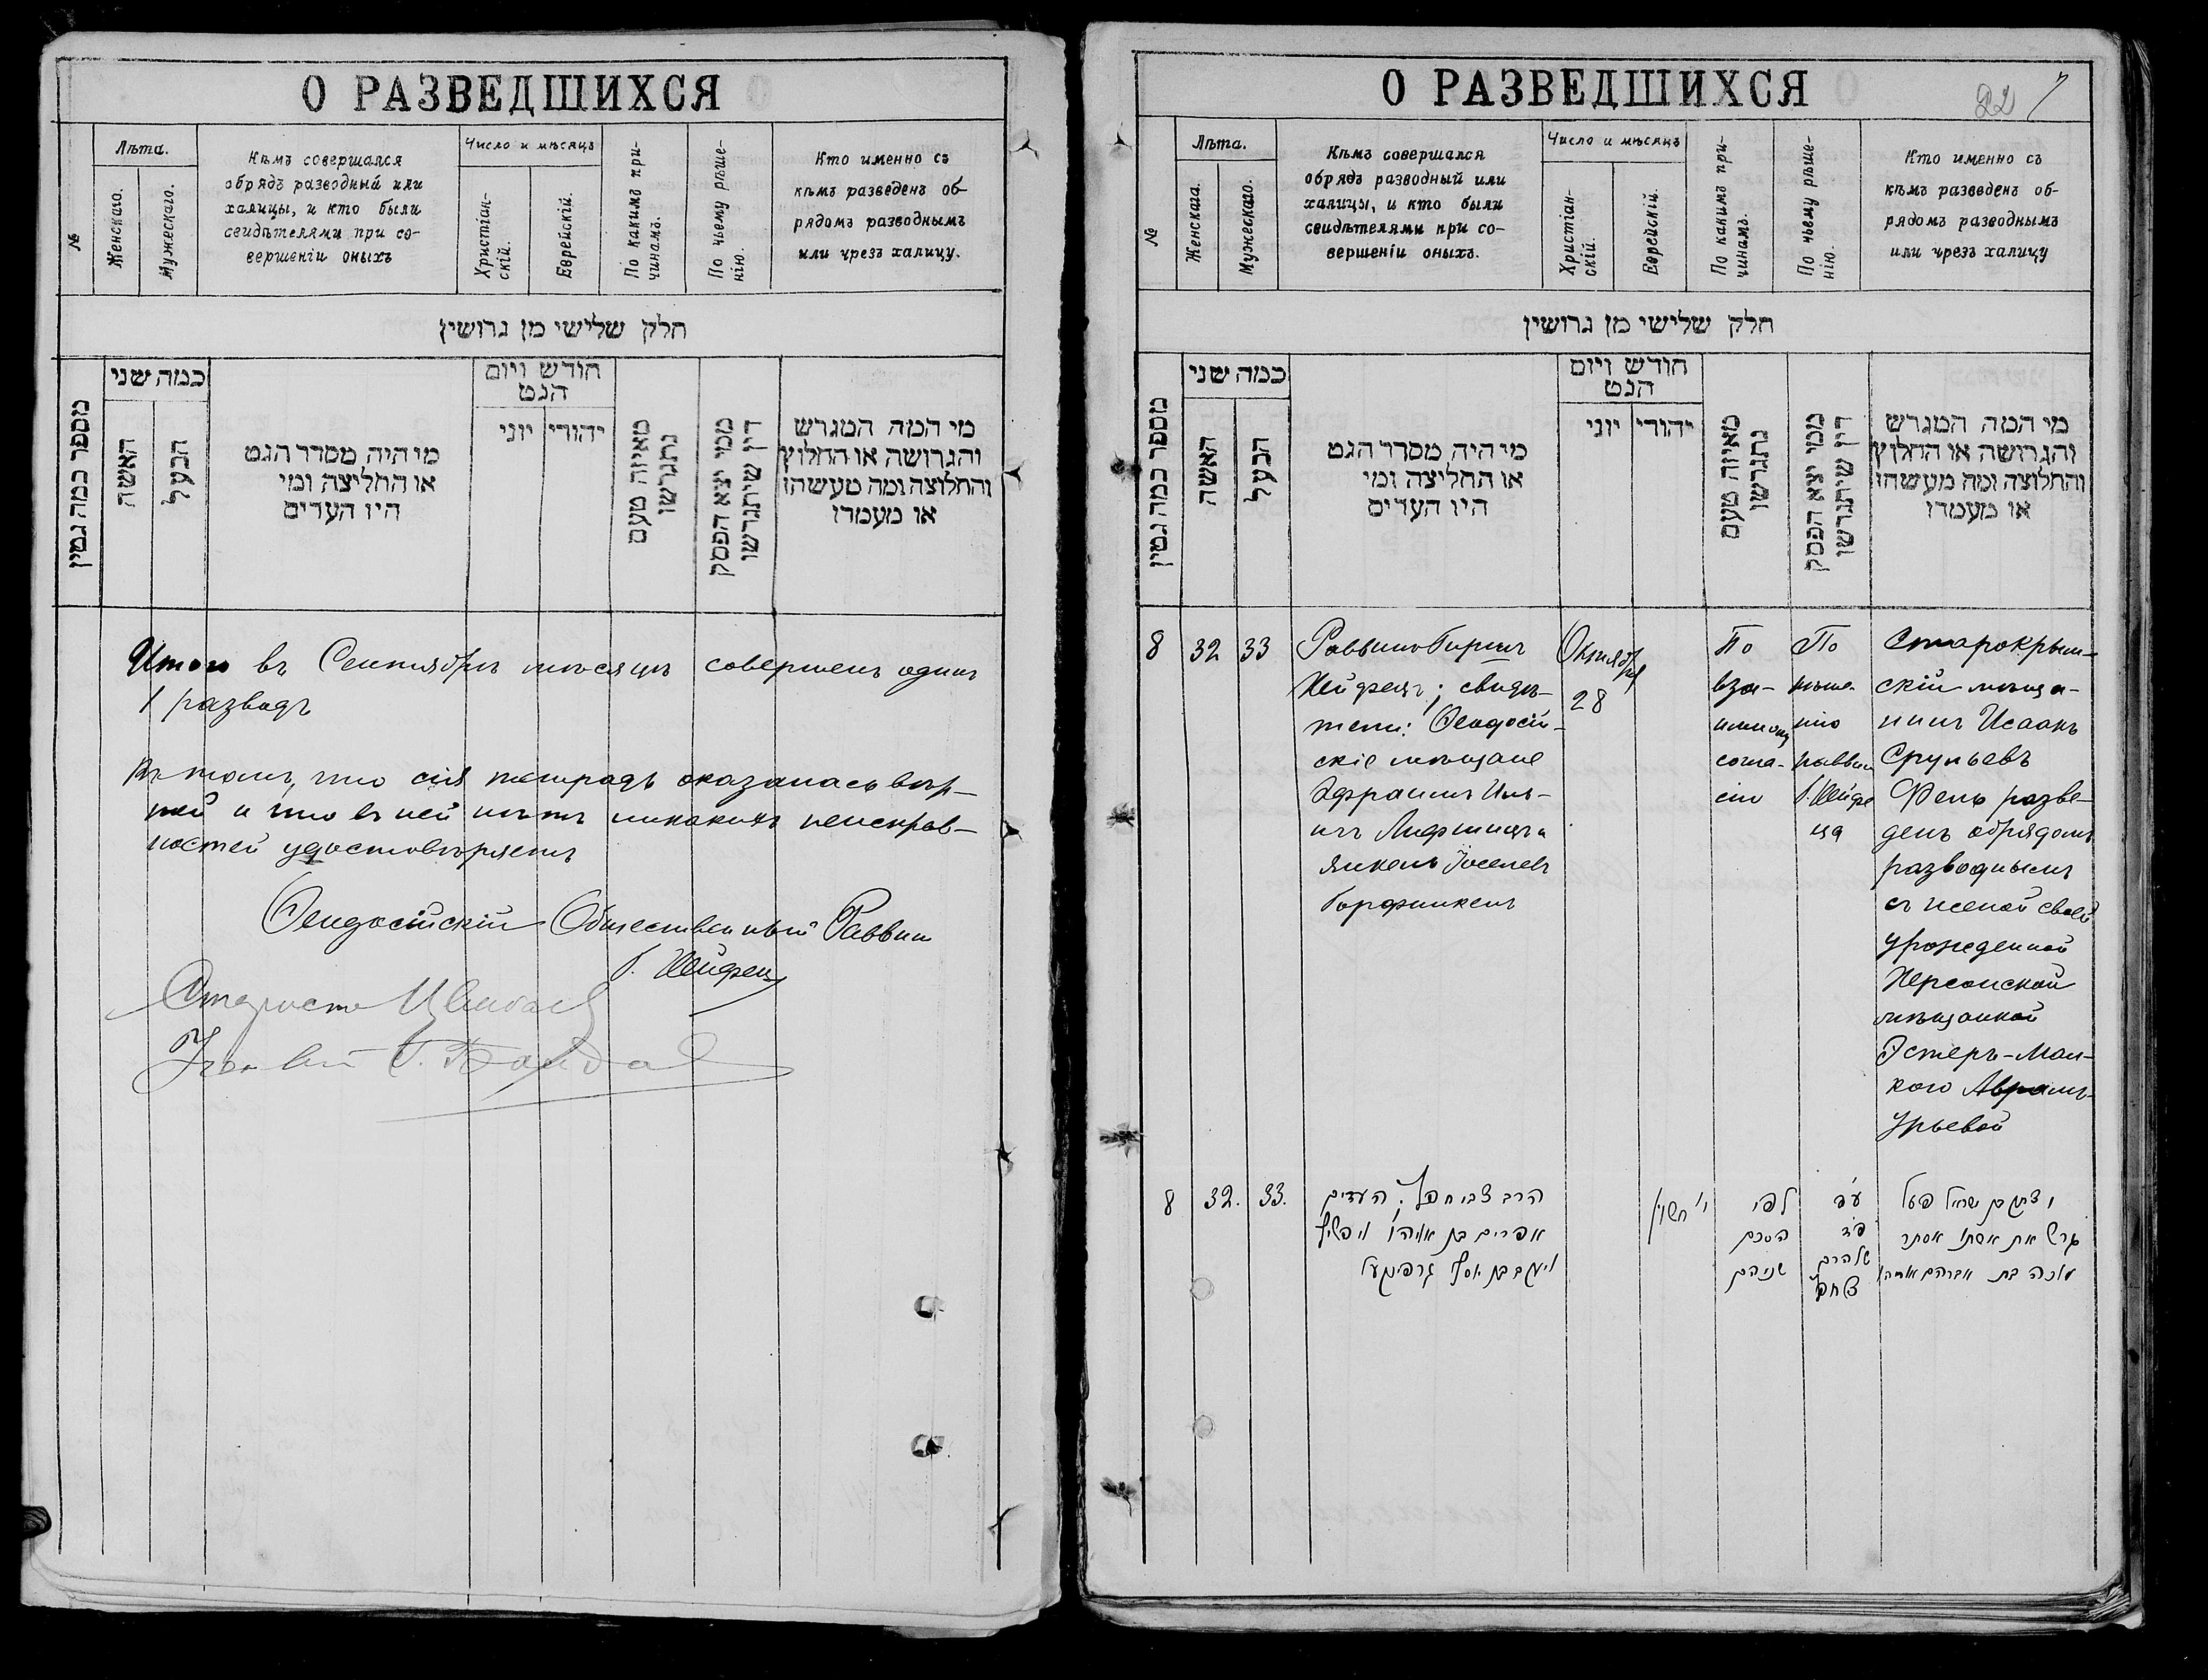 О РАЗВЕДШИХСЯ
№
Лѣта.
Женскаго.
Мужескаго.
Кѣмъ совершался
обрядъ разводный или
халицы, и кто были
свидѣтелями при со-
вершеніи оныхъ
Число и мѣсяцъ
Христіан-
скій.
Еврейскій.
По какимъ при-
чинамъ.
По чьему рѣше-
нію.
Кто именно съ
кѣмъ разведенъ об-
рядомъ разводнымъ
или чрезъ халицу.
חלק שלישי מן גרושין
מספר כמה גטין
כמה שני
האשה
הבעל
מי היה מסדר הגט
או החליצה ומי
היו העדים
חודש ויום
הגט
יוני
יהודי
מאיזה טעם
נתגרשו
ממי יצא הפסק
דין שיתגרשו
מי המה המגרש
והגרושה או החלוץ
והחלוצה ומה מעשהו
או מעמדו
Итого въ Сентябрѣ мѣсяцѣ совершенъ одинъ
1 разводъ
Въ томъ, что сія тетрадь оказалась вѣр-
ной и что въ ней нѣтъ никакихъ неисправ-
ностей удостовѣряетъ
Ѳеодосійскій Общественный Раввин
Г. Хейфец
Староста
О РАЗВЕДШИХСЯ
22 7
№
Лѣта.
Женскаго.
Мужескаго.
Кѣмъ совершался
обрядъ разводный или
халицы, и кто были
свидѣтелями при со-
вершеніи оныхъ.
Число и мѣсяцъ
Христіан-
скій.
Еврейскій.
По какимъ при-
чинамъ.
По чьему рѣше-
нію.
Кто именно съ
кѣмъ разведенъ об-
рядомъ разводнымъ
или чрезъ халицу
חלק שלישי מן גרושין
מספר כמה גטין
כמה שני
האשה
הבעל
מי היה מסדר הגט
או החליצה ומי
היו העדים
חודש ויום
הגט
יוני
יהודי
מאיזה טעם
נתגרשו
ממי יצא הפסק
דין שיתגרשו
מי המה המגרש
והגרושה או החלוץ
והחלוצה ומה מעשהו
או מעמדו
8
32
33
Раввино Гиршъ
Хейфецъ; свидѣ-
тели: Ѳеодосій-
скіе мѣщане
Эфраимъ Иль-
ичъ Лифшицъ и
Янкель Іоселевъ
Гарфинкель
Октября
28
По
вза-
имному
согла-
сію
По
рѣше-
нію
раввина
Г. Хейфе
ца
Старокрым-
скій мѣща-
нинъ Исаакъ
Срульевъ
Фель разве-
денъ обрядомъ
разводнымъ
съ женой своей
урожденной
Херсонской
мѣщанкой
Эстеръ-Мал-
кою Аврамъ-
Урьевой
8
32.
33.
הרב צבי חפץ. העדים
אפרים בן אליהו ליפשיץ
ויעקב בן יוסף גרפינקעל
י' חשון
לפי
הסכם
שניהם
ע"פ
פ"ד
של הרב
צ. חפץ
יצחק בן ישראל פעל
גרש את אשתו אסתר
מלכה בת אברהם אוריה